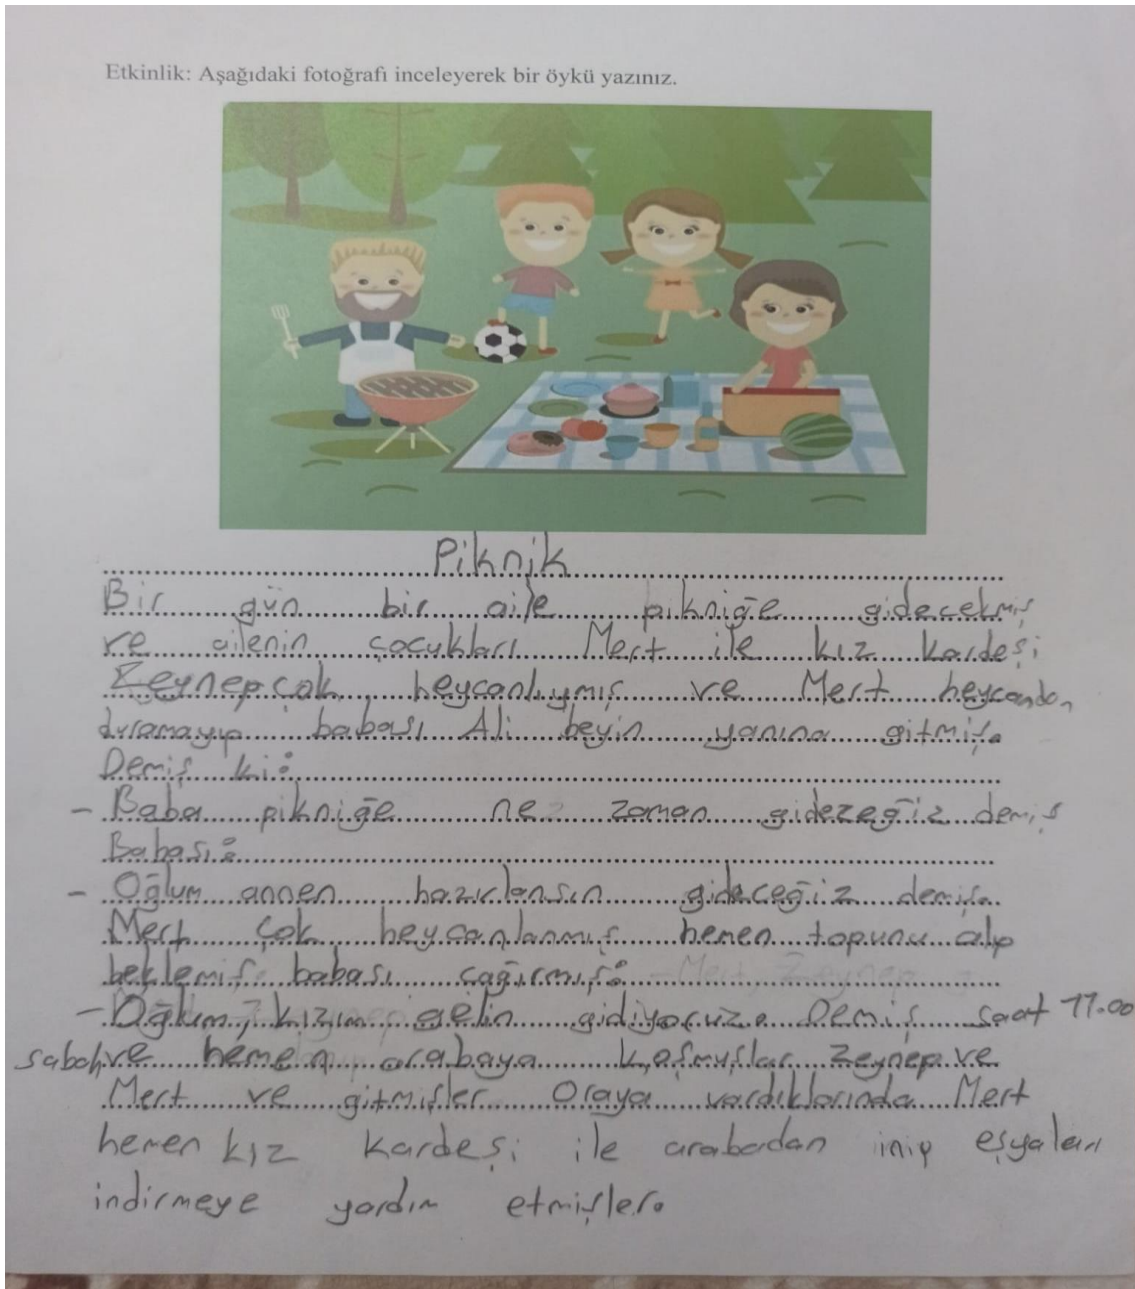 Etkinlik: Aşağıdaki fotoğrafı inceleyerek bir öykü yazınız.
Piknik
Bir gün bir aile pikniğe gidecekmiş
ve ailenin çocukları Mert ile kız kardeşi
Zeynep çok heycanlıymış ve Mert heycandan
duramayıp babası Ali beyin yanına gitmiş.
Demiş ki:
- Baba pikniğe ne zaman gidezeğiz demiş
Babası:
- Oğlum annen hazırlansın gideceğiz demiş.
Mert çok heycanlanmış hemen topunu alıp
beklemiş babası çağırmış:
- Oğlum, kızım gelin gidiyoruz. Demiş saat 11.00
sabah ve hemen arabaya koşmuşlar Zeynep ve
Mert ve gitmişler Oraya vardıklarında Mert
hemen kız kardeşi ile arabadan inip eşyaları
indirmeye yardım etmişler.